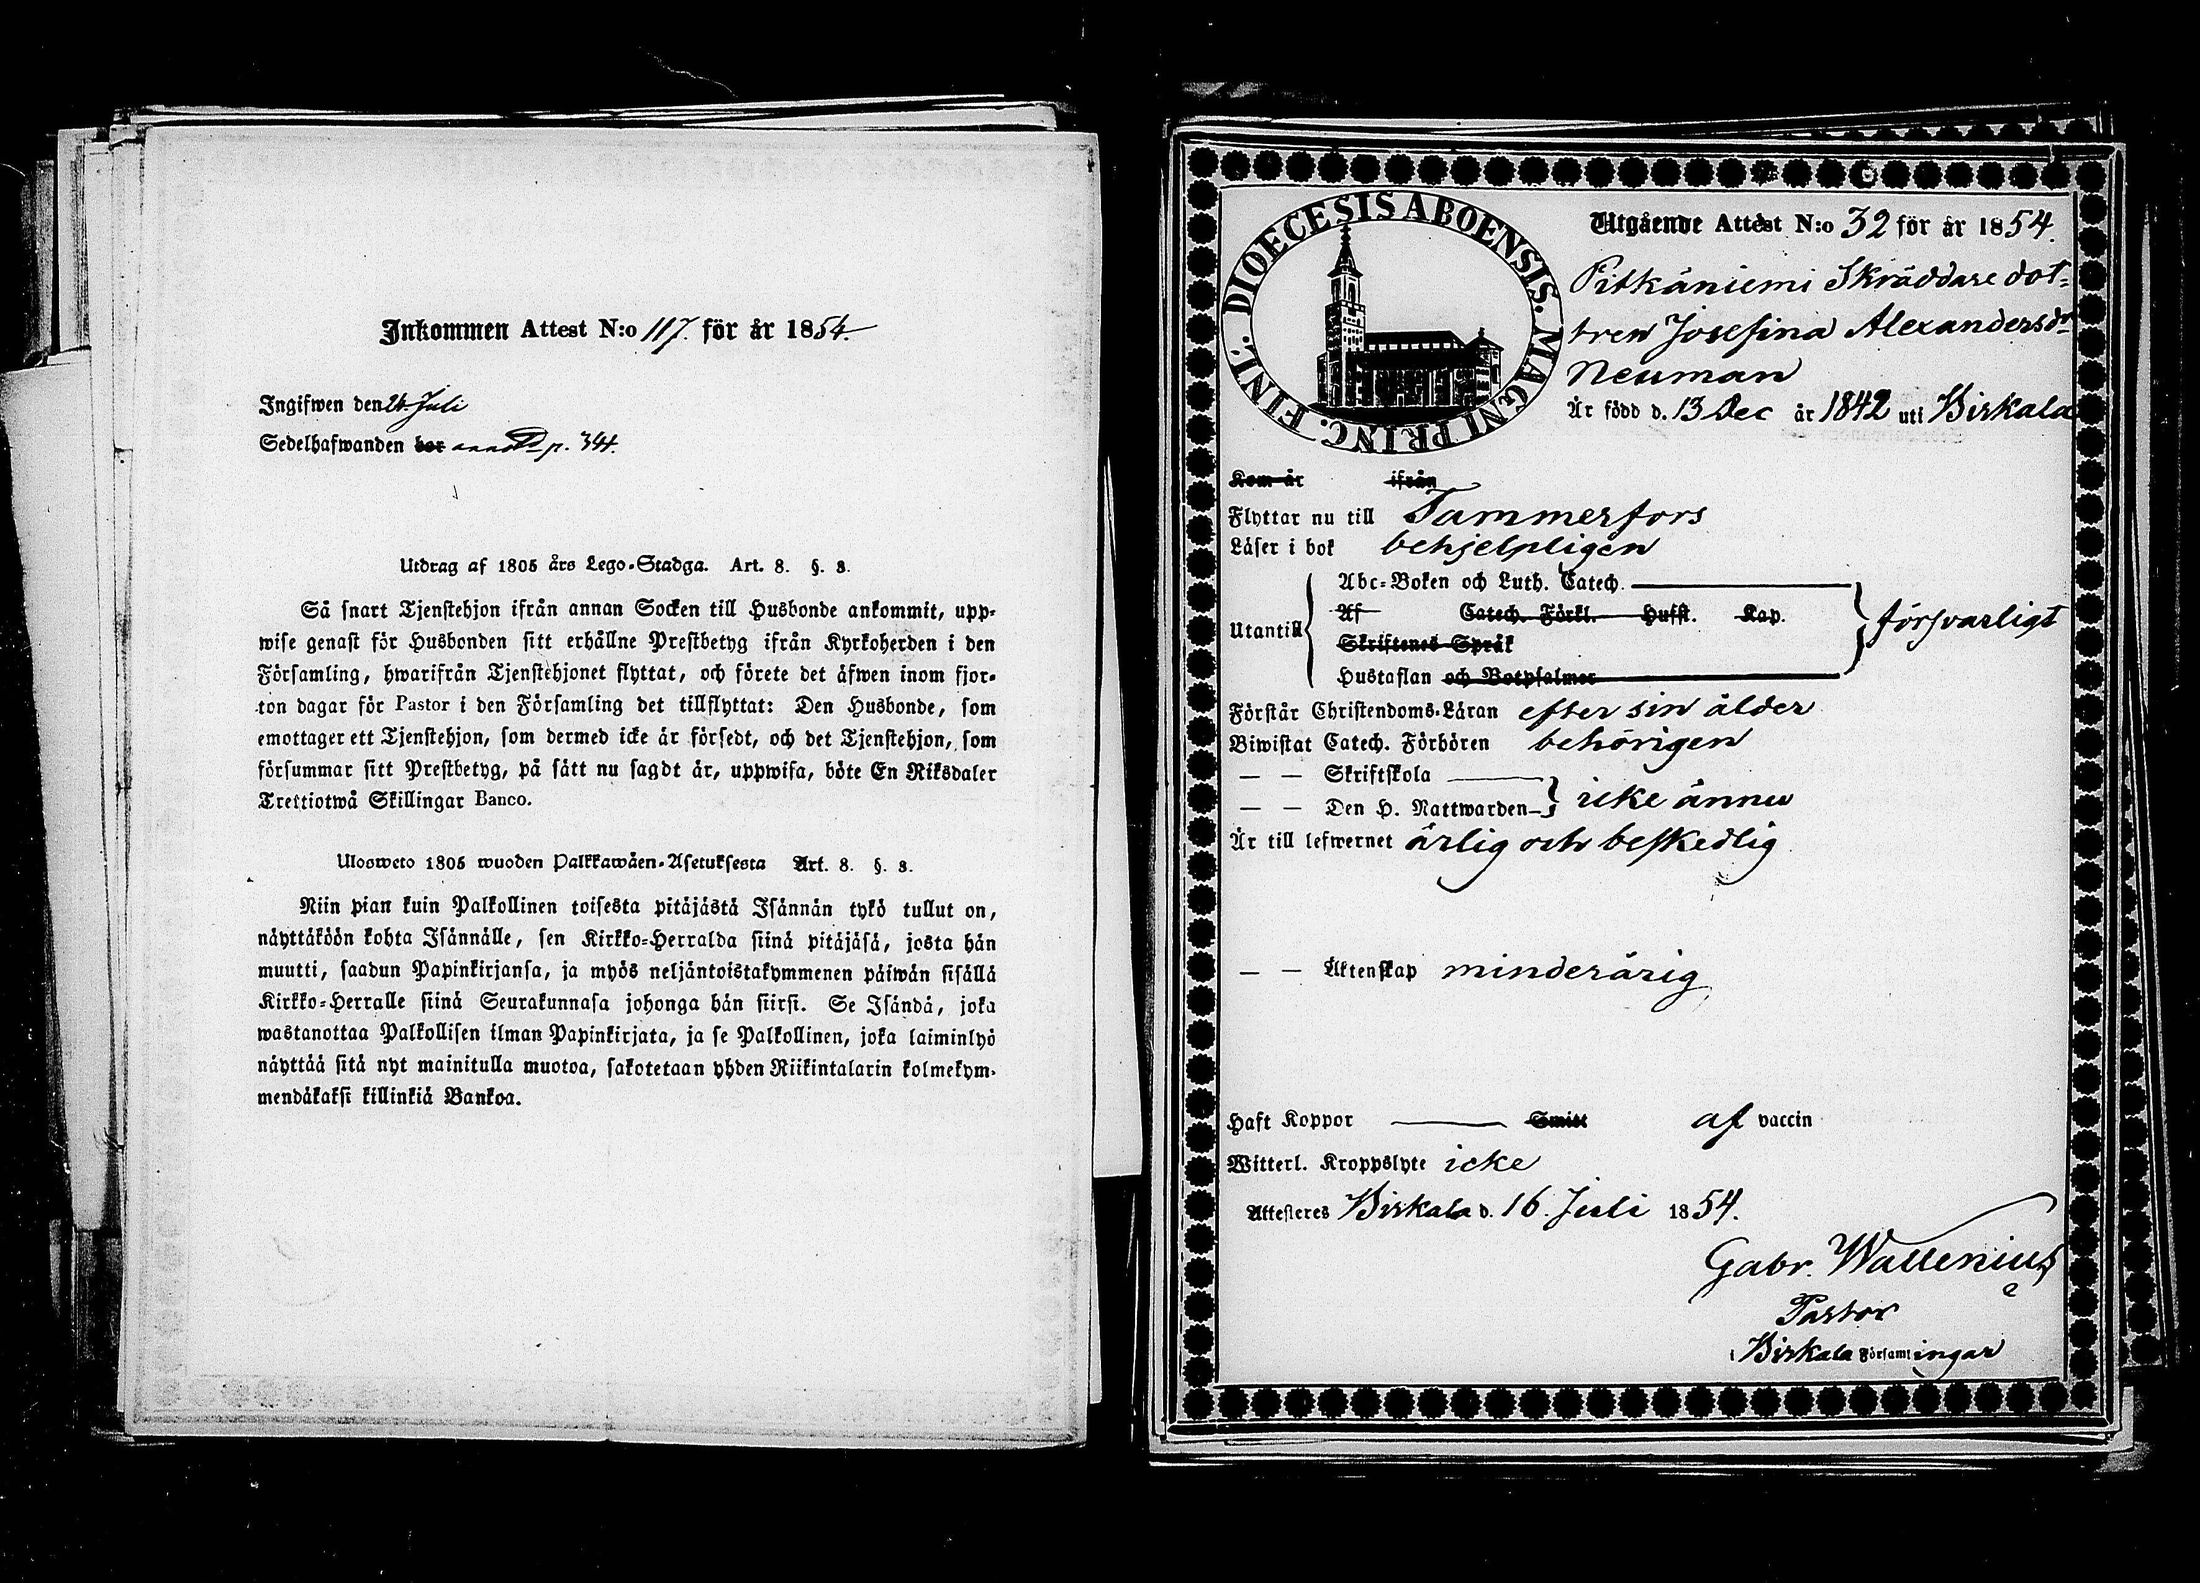 Inkommen Attest N:o 117. för år 1854.
Ingifwen den 26. Juli
Sedelhafwanden bor p. 344.
Utdrag af 1805 års Lego-Stadga. Art. 8. §. 3.
Så snart Tjenstehjon ifrån annan Socken till Husbonde ankommit, upp-
wise genast för Husbonden sitt erhållne Prestbetyg ifrån Kyrkoherden i den
Församling, hwarifrån Tjenstehjonet flyttat, och förete det äfwen inom fjor-
ton dagar för Pastor i den Församling det tillflyttat: Den Husbonde, som
emottager ett Tjenstehjon, som dermed icke är försedt, och det Tjenstehjon, som
försummar sitt Prestbetyg, på sätt nu sagdt är, uppwisa, böte En Riksdaler
Trettiotwå Skillingar Banco.
Ulosweto 1805 wuoden Palkkawäen-Asetuksesta Art. 8. §. 3.
Niin pian kuin Palkollinen toisesta pitäjästä Isännän tykö tullut on,
näyttäköön kohta Isännälle, sen Kirkko-Herralda siinä pitäjäsä, josta hän
muutti, saadun Papinkirjansa, ja myös neljäntoistakymmenen päiwän sisällä
Kirkko-Herralle siinä Seurakunnasa johonga hän siirsi. Se Isändä, joka
wastanottaa Palkollisen ilman Papinkirjata, ja se Palkollinen, joka laiminlyö
näyttää sitä nyt mainitulla muotoa, sakotetaan yhden Riikintalarin kolmekym-
mendäkaksi killinkiä Bankoa.
DIOECESIS ABOENSIS. MAGNI PRINC. FINL.
Utgående Attest N:o 32 för år 1854.
Pitkäniemi Skräddare dot-
tren Josefina Alexandersdr
Neuman
Är född d. 13 Dec år 1842 uti Birkala
Kom år ifrån
Flyttar nu till Tammerfors
Läser i bok behjelpligen
Utantill
Abc-Boken och Luth. Catech.
Af Catech. Förkl. Hufst. Kap.
Skriftenes Språk
Hustaflan och Botpsalmer
försvarligt
Förstår Christendoms-Läran efter sin ålder
Biwistat Catech. Förhören behörigen
— — Skriftskola
— — Den H. Nattwarden icke ännu
Är till lefwernet ärlig och beskedlig
— — Äktenskap minderårig
Haft Koppor Smitt af vaccin
Witterl. Kroppslyte icke
Attesteres Birkala d. 16. Juli 1854.
Gabr. Wallenius
Pastor
i Birkala Församlingar